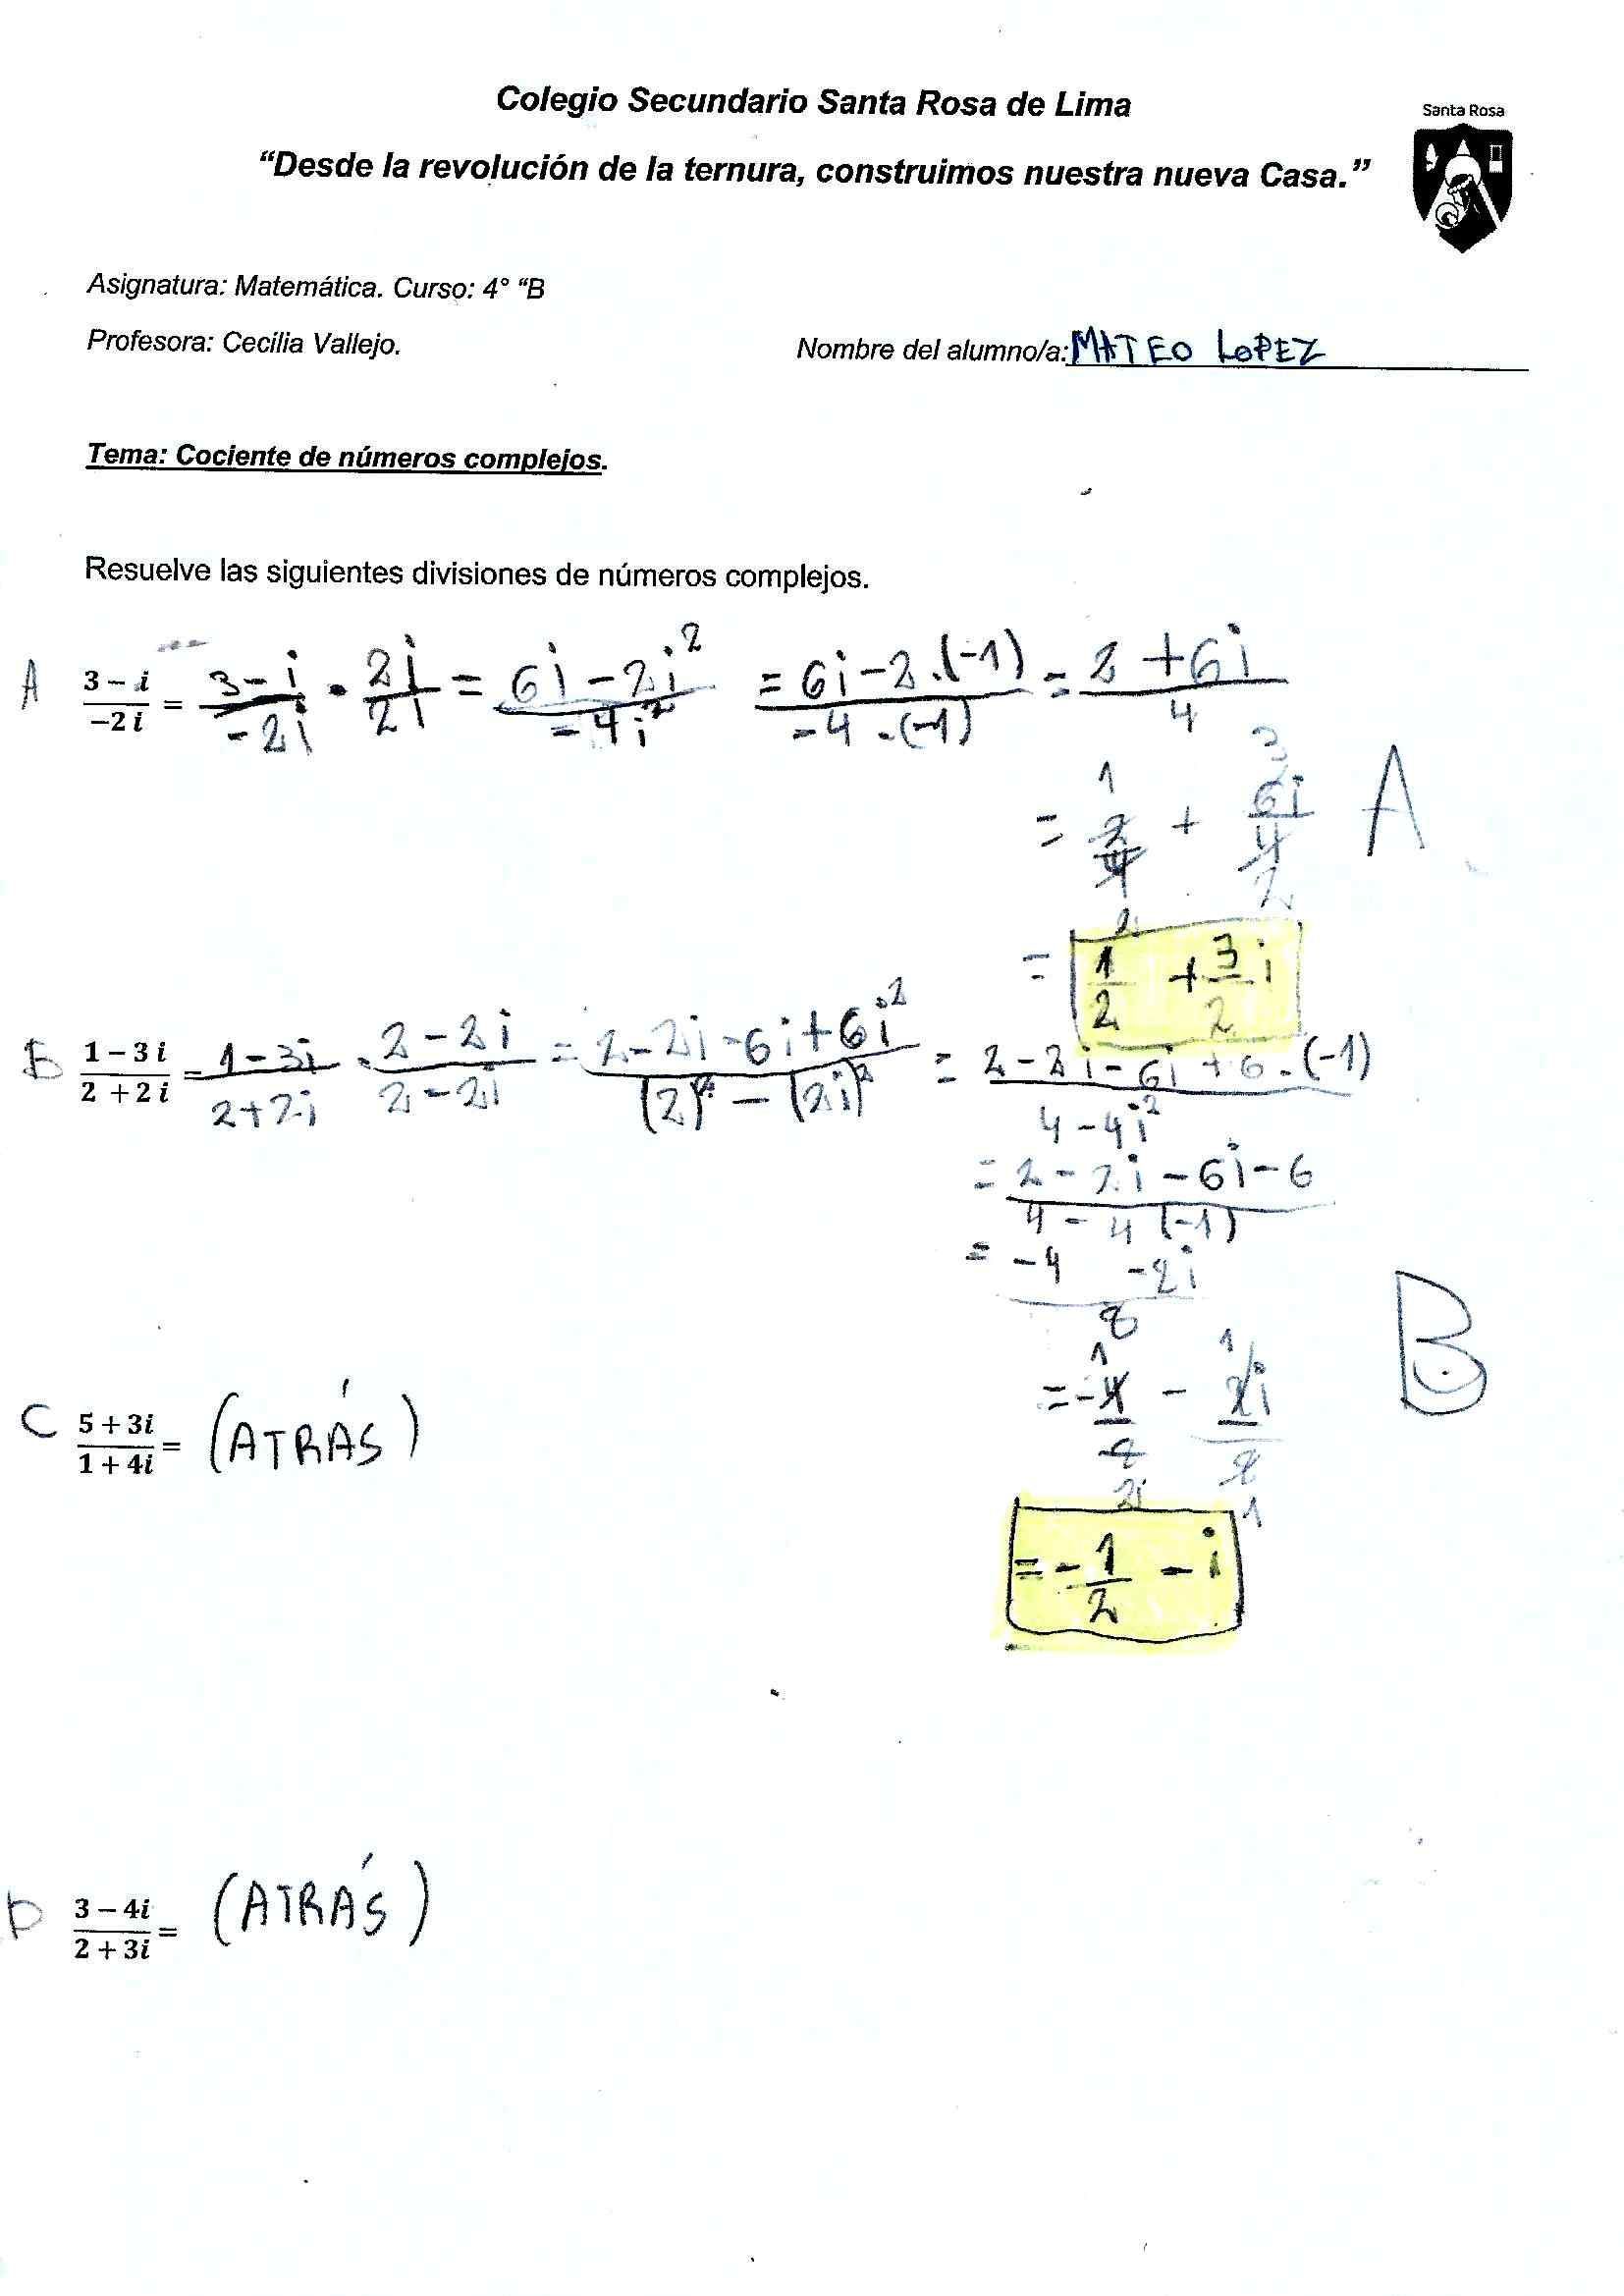 Colegio Secundario Santa Rosa de Lima
Santa Rosa
“Desde la revolución de la ternura, construimos nuestra nueva Casa.”
Asignatura: Matemática. Curso: 4° “B
Profesora: Cecilia Vallejo.
Nombre del alumno/a: MATEO LOPEZ
Tema: Cociente de números complejos.
Resuelve las siguientes divisiones de números complejos.
A (3 - i)/(-2 i) = (3-i)/(-2i) . (2i)/(2i) = (6i-2i²)/(-4i²) = (6i-2.(-1))/(-4.(-1)) = (2+6i)/4
= 2/4 + 6i/4 A
1 2 3 2
= 1/2 + 3/2 i
B (1 - 3 i)/(2 + 2 i) = (1-3i)/(2+2i) . (2-2i)/(2-2i) = (2-2i-6i+6i²)/((2)²-(2i)²) = (2-2i-6i+6.(-1))/(4-4i²)
= (2-2i-6i-6)/(4-4(-1))
= (-4 -2i)/8
B
= -1/2 - i
C (5 + 3i)/(1 + 4i) = (ATRÁS)
D (3 - 4i)/(2 + 3i) = (ATRÁS)